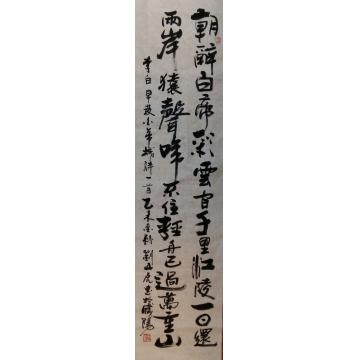 朝辭白帝彩雲間千里江陵一日還
兩岸猿聲啼不住輕舟已過萬重山
李白早發白帝城詩一首乙未金秋劉